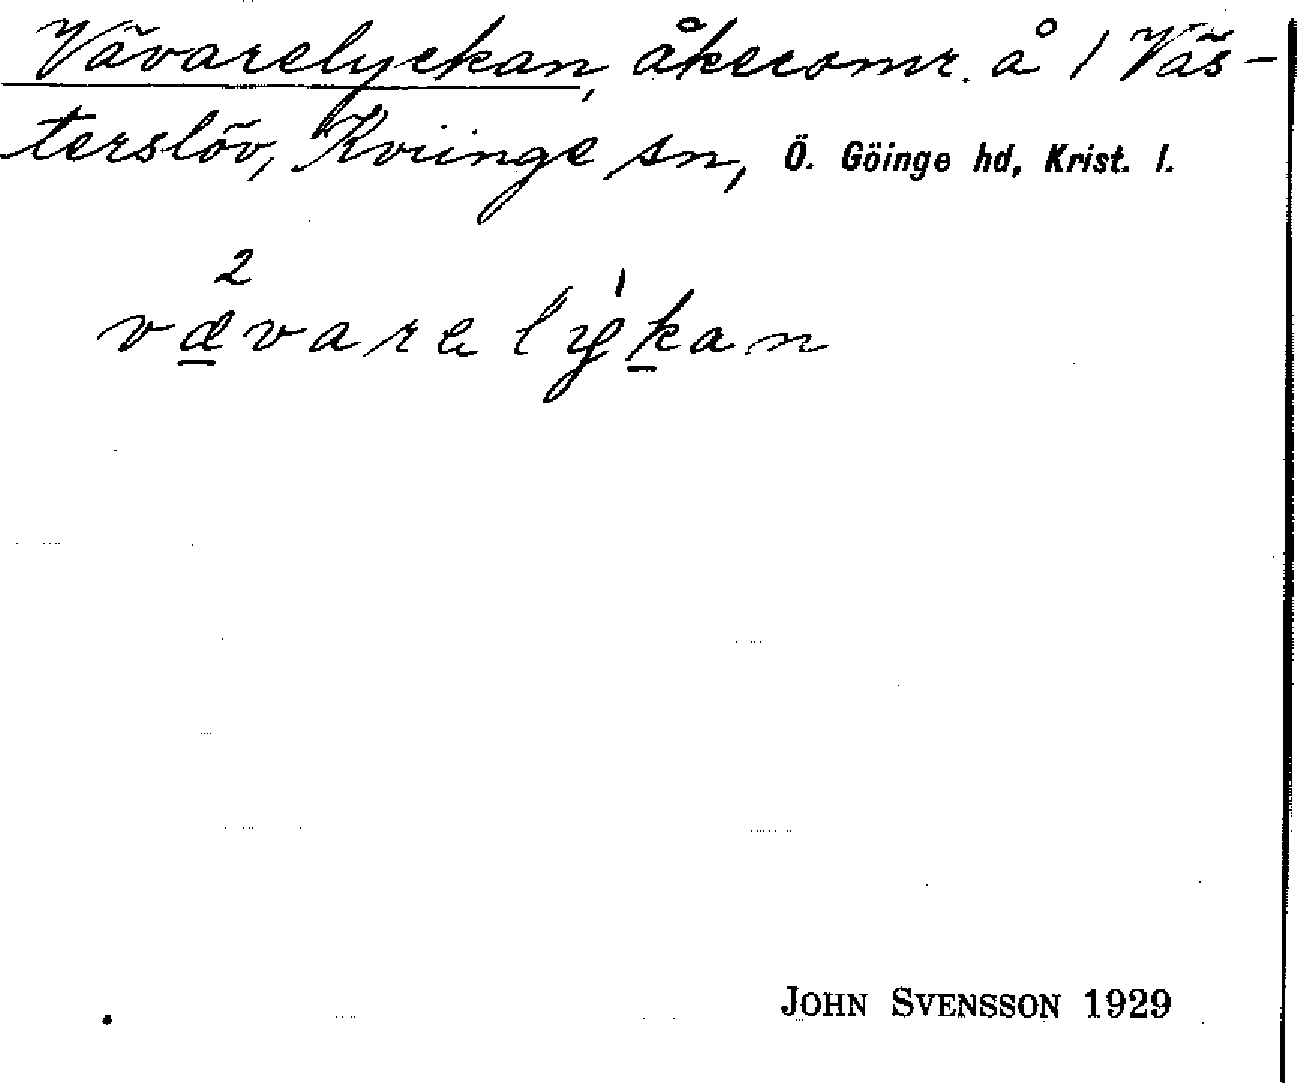 Vävarelyckan, åkeromr. å 1 Väs-
terslöv, Kviinge sn, Ö. Göinge hd, Krist. l.
2 ˈ
vævarelykan
JOHN SVENSSON 1929